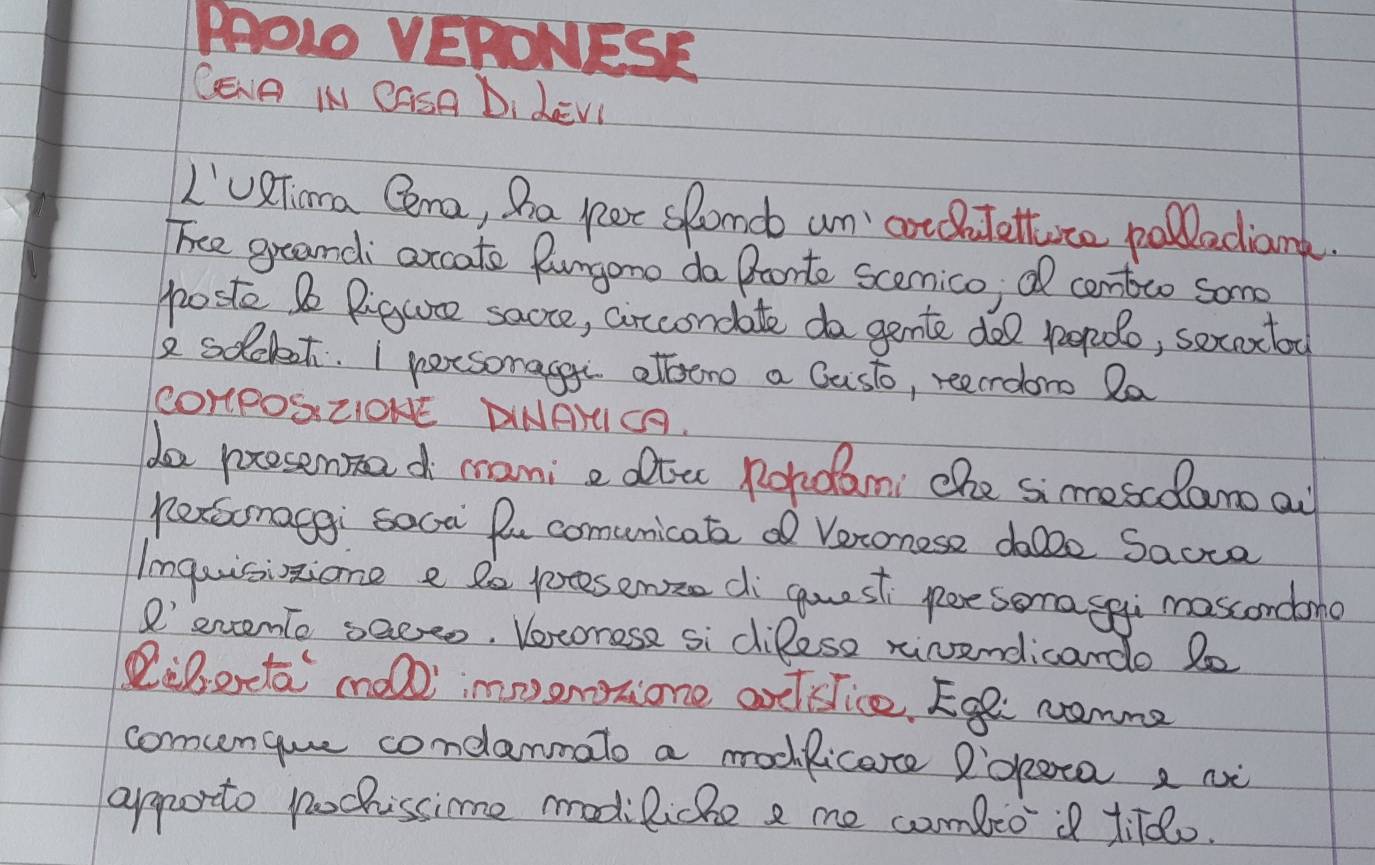 PAOLO VERONESE
CENA IN CASA DI LEVI
L'Ultima Cena, ha per sfondo un' architettura palladiana.
Tre grandi arcate fungono da fronte scenico, al centro sono
poste le figure sacre, circondate da gente del popolo, servitori
e soldati. I personaggi attorno a Cristo, rendono la
COMPOSIZIONE DINAMICA.
La presenza di nani e altri popolani che si mescolano ai
personaggi sacri fu comunicata al Veronese dalla Sacra
Inquisizione e la presenza di questi personaggi nascondono
l'evento sacro. Veronese si difese rivendicando la
libertà nell' invenzione artistica. Egli venne
comunque condannato a modificare l'opera e vi
apporto pochissime modifiche e ne cambiò il titolo.